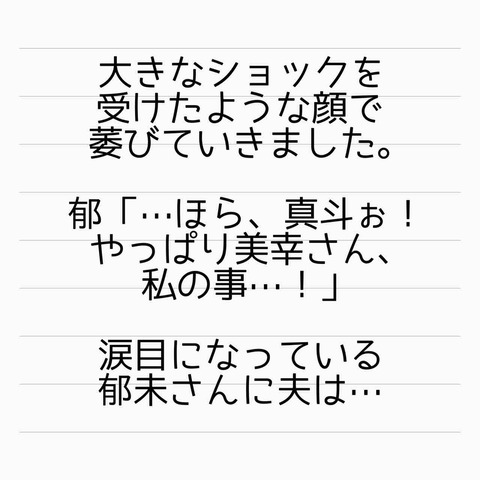 大きなショックを
受けたような顔で
萎びていきました。
郁「…ほら、真斗ぉ！
やっぱり美幸さん、
私の事…！」
涙目になっている
郁未さんに夫は…